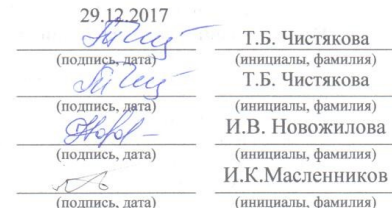 29.12.2017
Т.Б. Чистякова
(подпись, дата) (инициалы, фамилия)
Т.Б. Чистякова
(подпись, дата) (инициалы, фамилия)
И.В. Новожилова
(подпись, дата) (инициалы, фамилия)
И.К.Масленников
(подпись, дата) (инициалы, фамилия)